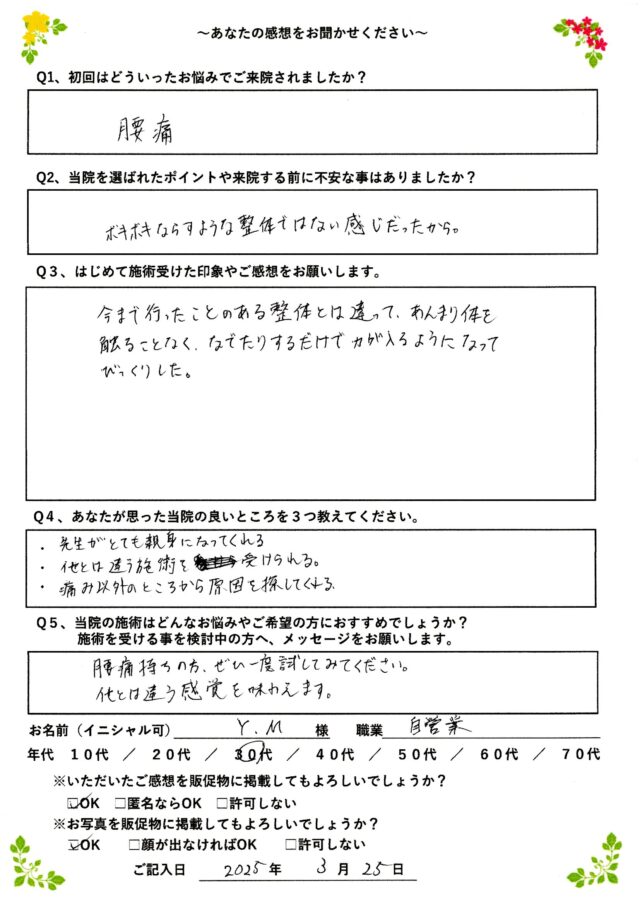 ～あなたの感想をお聞かせください～
Q1、初回はどういったお悩みでご来院されましたか？
腰痛
Q2、当院を選ばれたポイントや来院する前に不安な事はありましたか？
ボキボキならすような整体ではない感じだったから。
Q３、はじめて施術受けた印象やご感想をお願いします。
今まで行ったことのある整体とは違って、あんまり体を
触ることなく、なでたりするだけで力が入るようになって
びっくりした。
Q４、あなたが思った当院の良いところを３つ教えてください。
・先生がとても親身になってくれる
・他とは違う施術を受けられる。
・痛み以外のところから原因を探してくれる
Q５、当院の施術はどんなお悩みやご希望の方におすすめでしょうか？
施術を受ける事を検討中の方へ、メッセージをお願いします。
腰痛持ちの方、ぜひ一度試してみてください。
他とは違う感覚を味わえます。
お名前（イニシャル可） Y.M 様 職業 自営業
年代 １０代 ／ ２０代 ／ ３０代 ／ ４０代 ／ ５０代 ／ ６０代 ／ ７０代
※いただいたご感想を販促物に掲載してもよろしいでしょうか？
☑OK □匿名ならOK □許可しない
※お写真を販促物に掲載してもよろしいでしょうか？
☑OK □顔が出なければOK □許可しない
ご記入日 2025年 3月25日